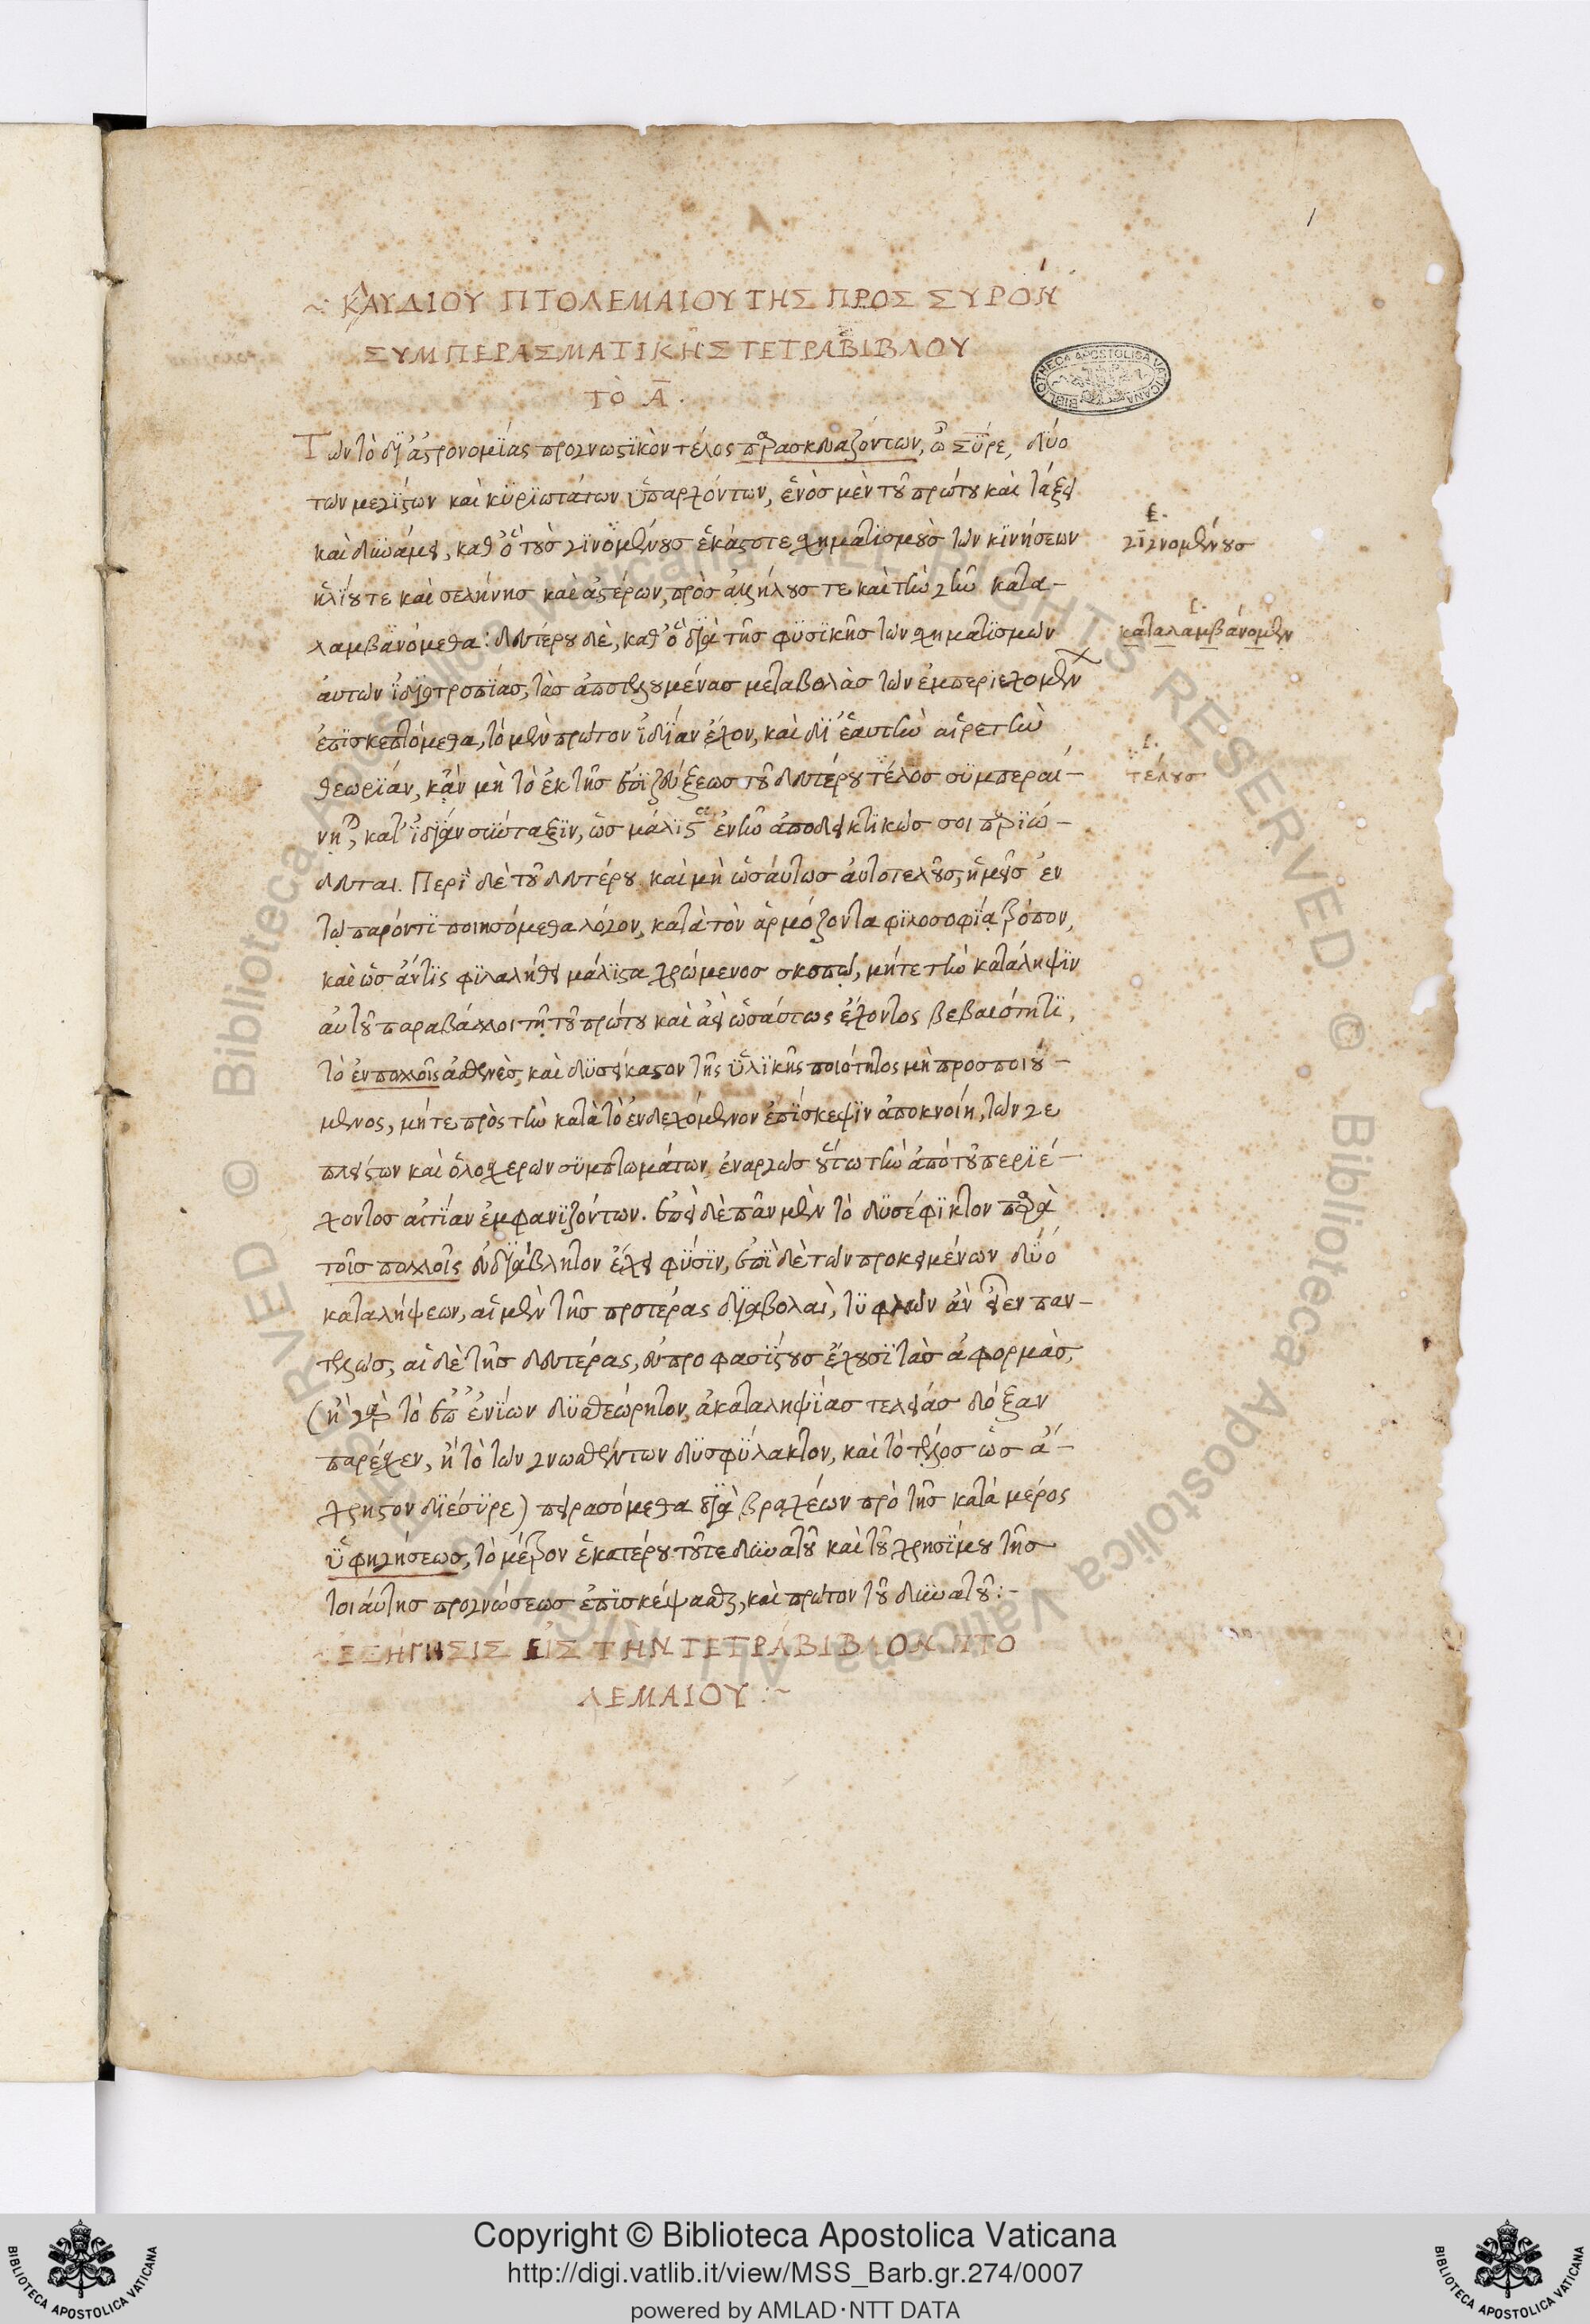 1
~ ΚΛΑΥΔΙΟΥ ΠΤΟΛΕΜΑΙΟΥ ΤΗΣ ΠΡΟΣ ΣΥΡΟΝ
ΣΥΜΠΕΡΑΣΜΑΤΙΚΗΣ ΤΕΤΡΑΒΙΒΛΟΥ
ΤΟ Α.
Τῶν τὸ δι' ἀστρονομίας προγνωστικὸν τέλος παρασκευαζόντων, ὦ Σύρε, δύο
τῶν μεγίστων καὶ κυριωτάτων ὑπαρχόντων, ἑνὸς μὲν τοῦ πρώτου καὶ τάξει
καὶ δυνάμει, καθ' ὃ τοὺς γινομένους ἑκάστοτε σχηματισμοὺς τῶν κινήσεων
γιγνομένους
ἡλίου τε καὶ σελήνης καὶ ἀστέρων, πρὸς ἀλλήλους τε καὶ τὴν γῆν κατα-
λαμβανόμεθα: δευτέρου δὲ, καθ' ὃ διὰ τῆς φυσικῆς τῶν σχηματισμῶν
καταλαμβάνομεν
αὐτῶν ἰδιοτροπίας, τὰς ἀποτελουμένας μεταβολὰς τῶν ἐμπεριεχομένων
ἐπισκεπτόμεθα, τὸ μὲν πρῶτον ἰδίαν ἔχον, καὶ δι' ἑαυτὴν αἱρετὴν
θεωρίαν, κἂν μὴ τὸ ἐκ τῆς ἐπιζεύξεως τοῦ δευτέρου τέλος συμπεραί-
τέλους
νηται, κατ' ἰδίαν σύνταξιν, ὡς μάλιστα ἐνῆν ἀποδεικτικῶς σοι περιώ-
δευται. Περὶ δὲ τοῦ δευτέρου καὶ μὴ ὡσαύτως αὐτοτελοῦς, ἡμεῖς ἐν
τῷ παρόντι ποιησόμεθα λόγον, κατὰ τὸν ἁρμόζοντα φιλοσοφίᾳ τρόπον,
καὶ ὡς ἄν τις φιλαλήθει μάλιστα χρώμενος σκοπῷ, μήτε τὴν κατάληψιν
αὐτοῦ παραβάλλοι τῇ τοῦ πρώτου καὶ ἀεὶ ὡσαύτως ἔχοντος βεβαιότητι,
τὸ ἐν πολλοῖς ἀσθενὲς, καὶ δυσείκαστον τῆς ὑλικῆς ποιότητος μὴ προσποιού-
μενος, μήτε πρὸς τὴν κατὰ τὸ ἐνδεχόμενον ἐπίσκεψιν ἀποκνοίη, τῶν γε
πλείστων καὶ ὁλοσχερῶν συμπτωμάτων, ἐναργῶς οὕτω τὴν ἀπὸ τοῦ περιέ-
χοντος αἰτίαν ἐμφανιζόντων. ἐπεὶ δὲ πᾶν μὲν τὸ δυσέφικτον παρὰ
τοῖς πολλοῖς εὐδιάβλητον ἔχει φύσιν, ἐπὶ δὲ τῶν προκειμένων δύο
καταλήψεων, αἱ μὲν τῆς προτέρας διαβολαὶ, τυφλῶν ἂν εἶεν παν-
τελῶς, αἱ δὲ τῆς δευτέρας, εὐπροφασίστους ἔχουσι τὰς ἀφορμὰς,
(ἢ γὰρ τὸ ἐπ' ἐνίων δυσθεώρητον, ἀκαταληψίας τελείας δόξαν
παρέσχεν, ἢ τὸ τῶν γνωσθέντων δυσφύλακτον, καὶ τὸ τέλος ὡς ἄ-
χρηστον διέσυρε) πειρασόμεθα διὰ βραχέων πρὸ τῆς κατὰ μέρος
ὑφηγήσεως, τὸ μέτρον ἑκατέρου τοῦ τε δυνατοῦ καὶ τοῦ χρησίμου τῆς
τοιαύτης προγνώσεως ἐπισκέψασθαι, καὶ πρῶτον τοῦ δυνατοῦ:-
ΕΞΗΓΗΣΙΣ ΕΙΣ ΤΗΝ ΤΕΤΡΑΒΙΒΛΟΝ ΠΤΟ
ΛΕΜΑΙΟΥ :~
BIBLIOTHECA APOSTOLICA VATICANA
© Biblioteca Apostolica Vaticana ALL RIGHTS RESERVED © Biblioteca Apostolica Vaticana ALL RIGHTS RESERVED
Copyright © Biblioteca Apostolica Vaticana
http://digi.vatlib.it/view/MSS_Barb.gr.274/0007
powered by AMLAD·NTT DATA
BIBLIOTECA APOSTOLICA VATICANA
BIBLIOTECA APOSTOLICA VATICANA